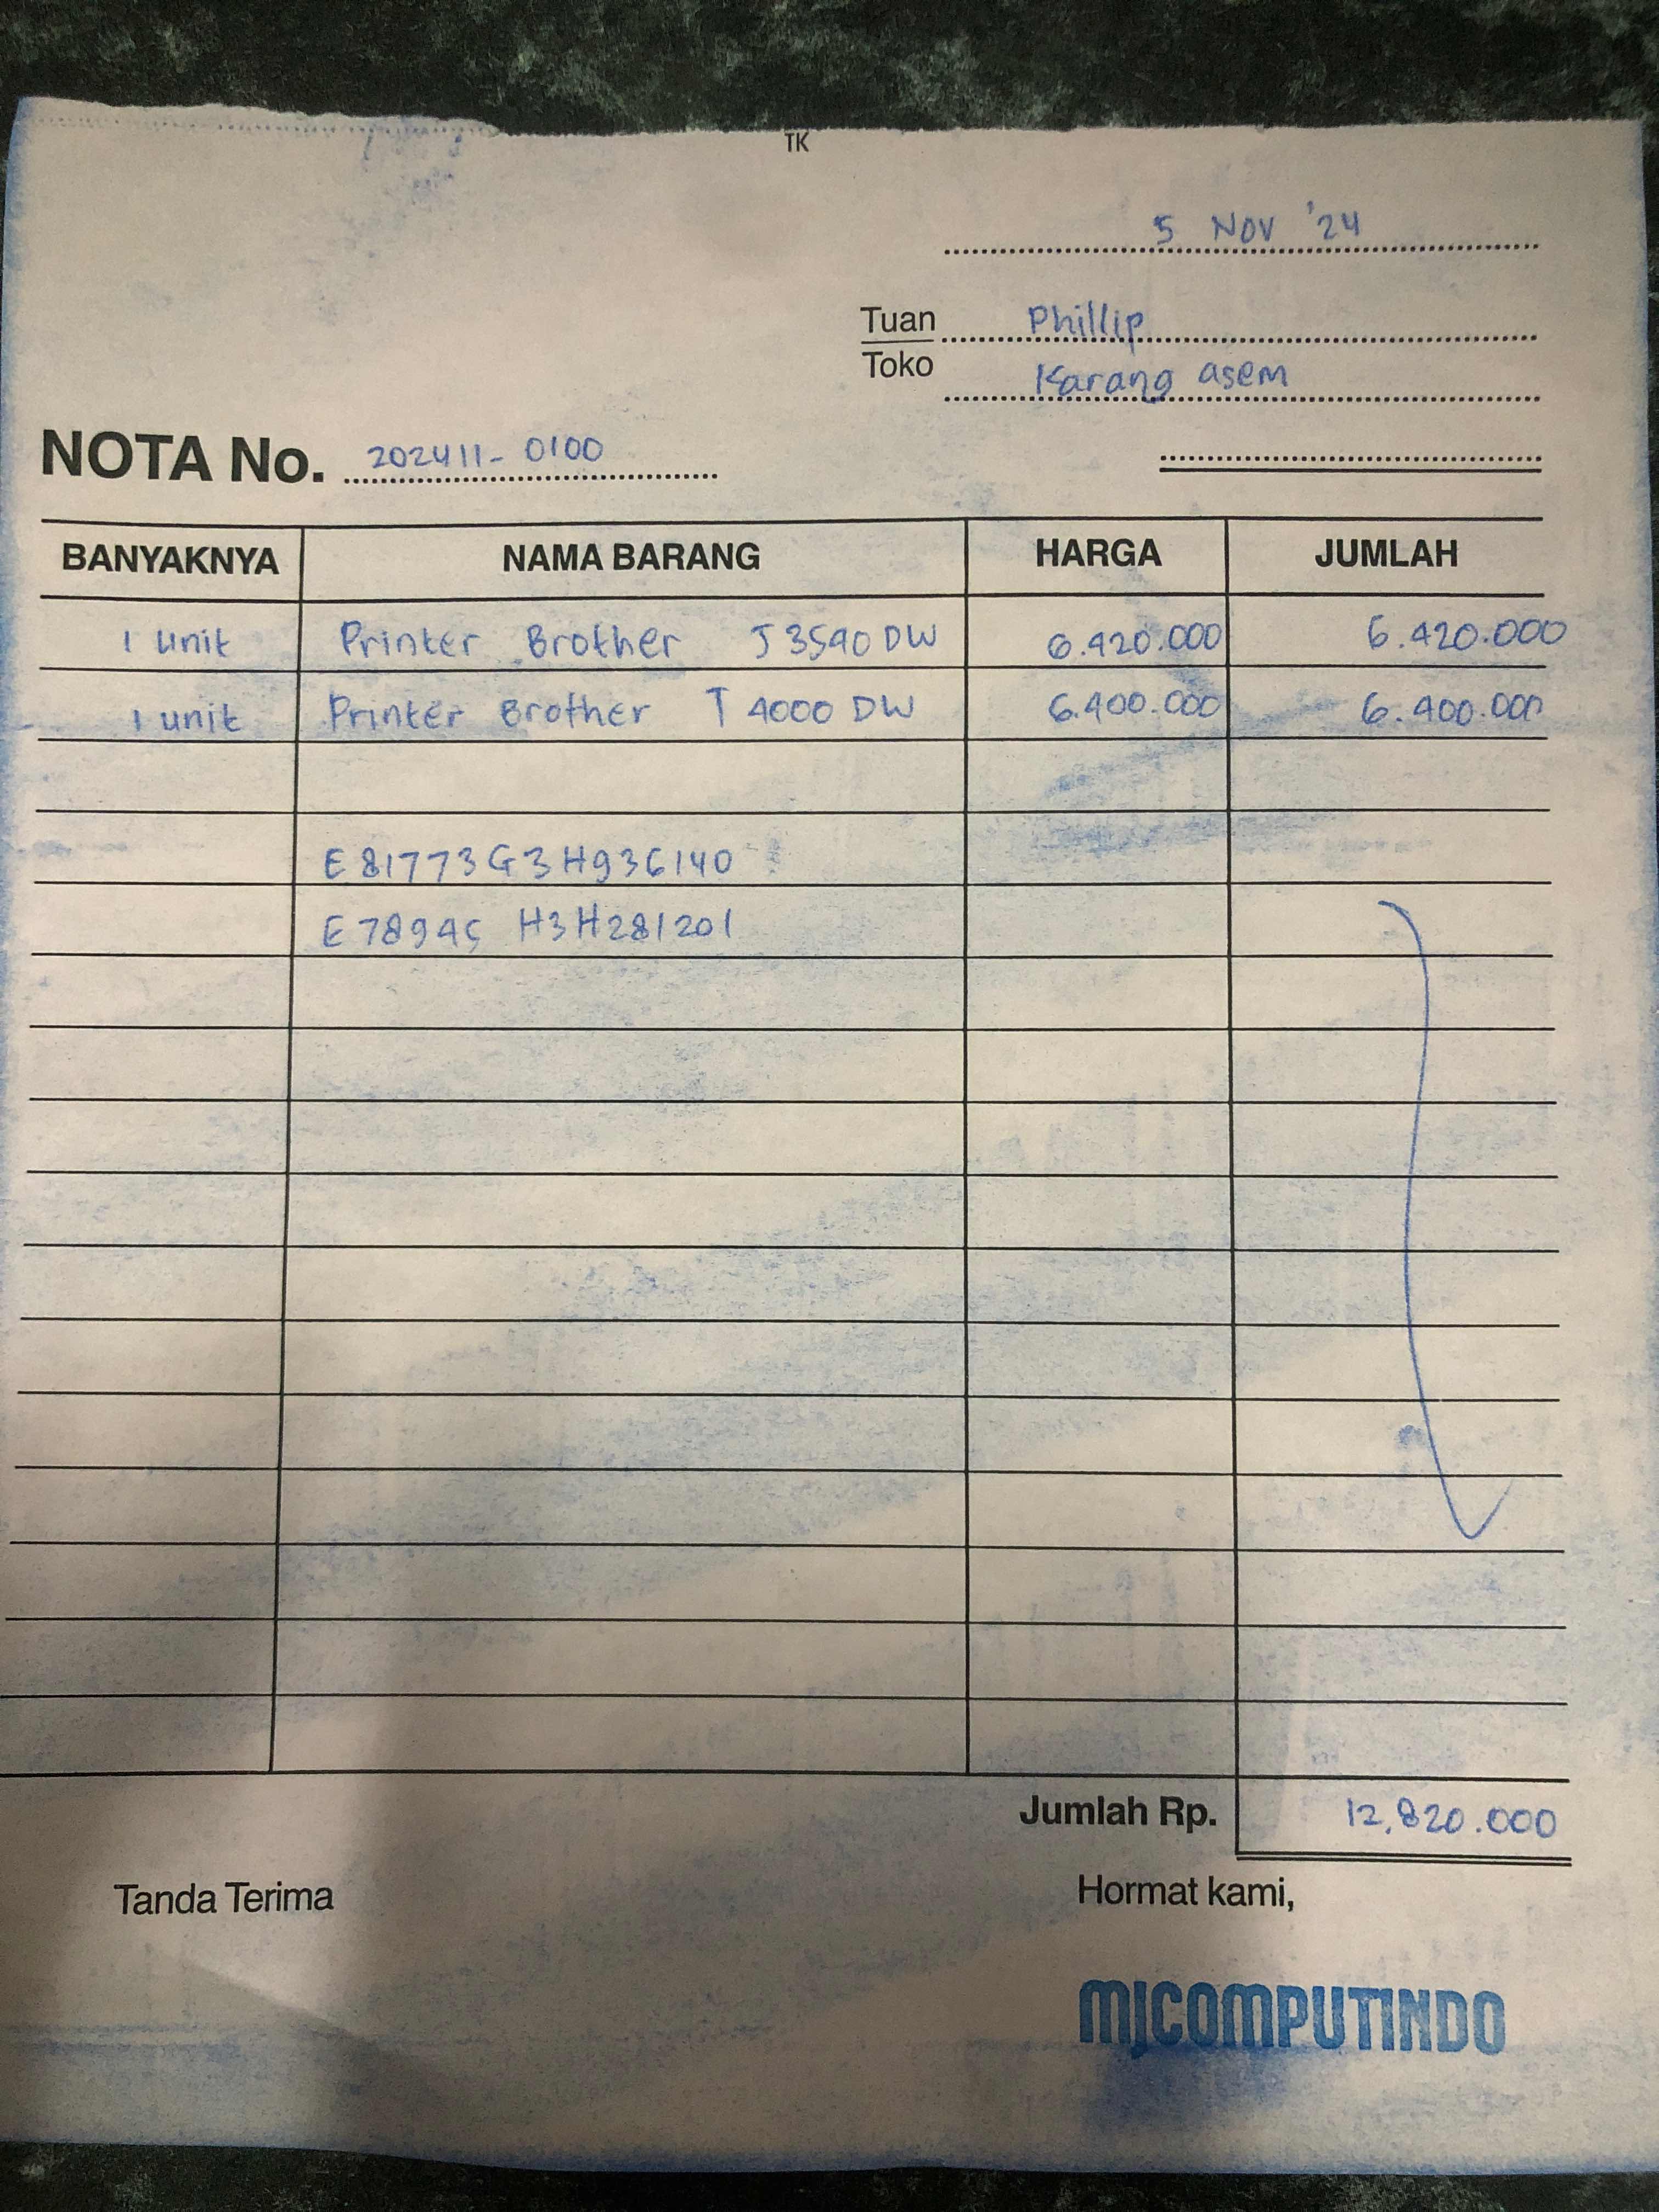 TK
5 Nov '24
Tuan Phillip
Toko Karang asem
NOTA No. 202411-0100
BANYAKNYA NAMA BARANG HARGA JUMLAH
1 unit Printer Brother J3590 DW 6.420.000 6.420.000
1 unit Printer Brother T 4000 DW 6.400.000 6.400.000
E81773G3H936140
E78945 H3H281201
Jumlah Rp. 12,820.000
Tanda Terima Hormat kami,
MJCOMPUTINDO